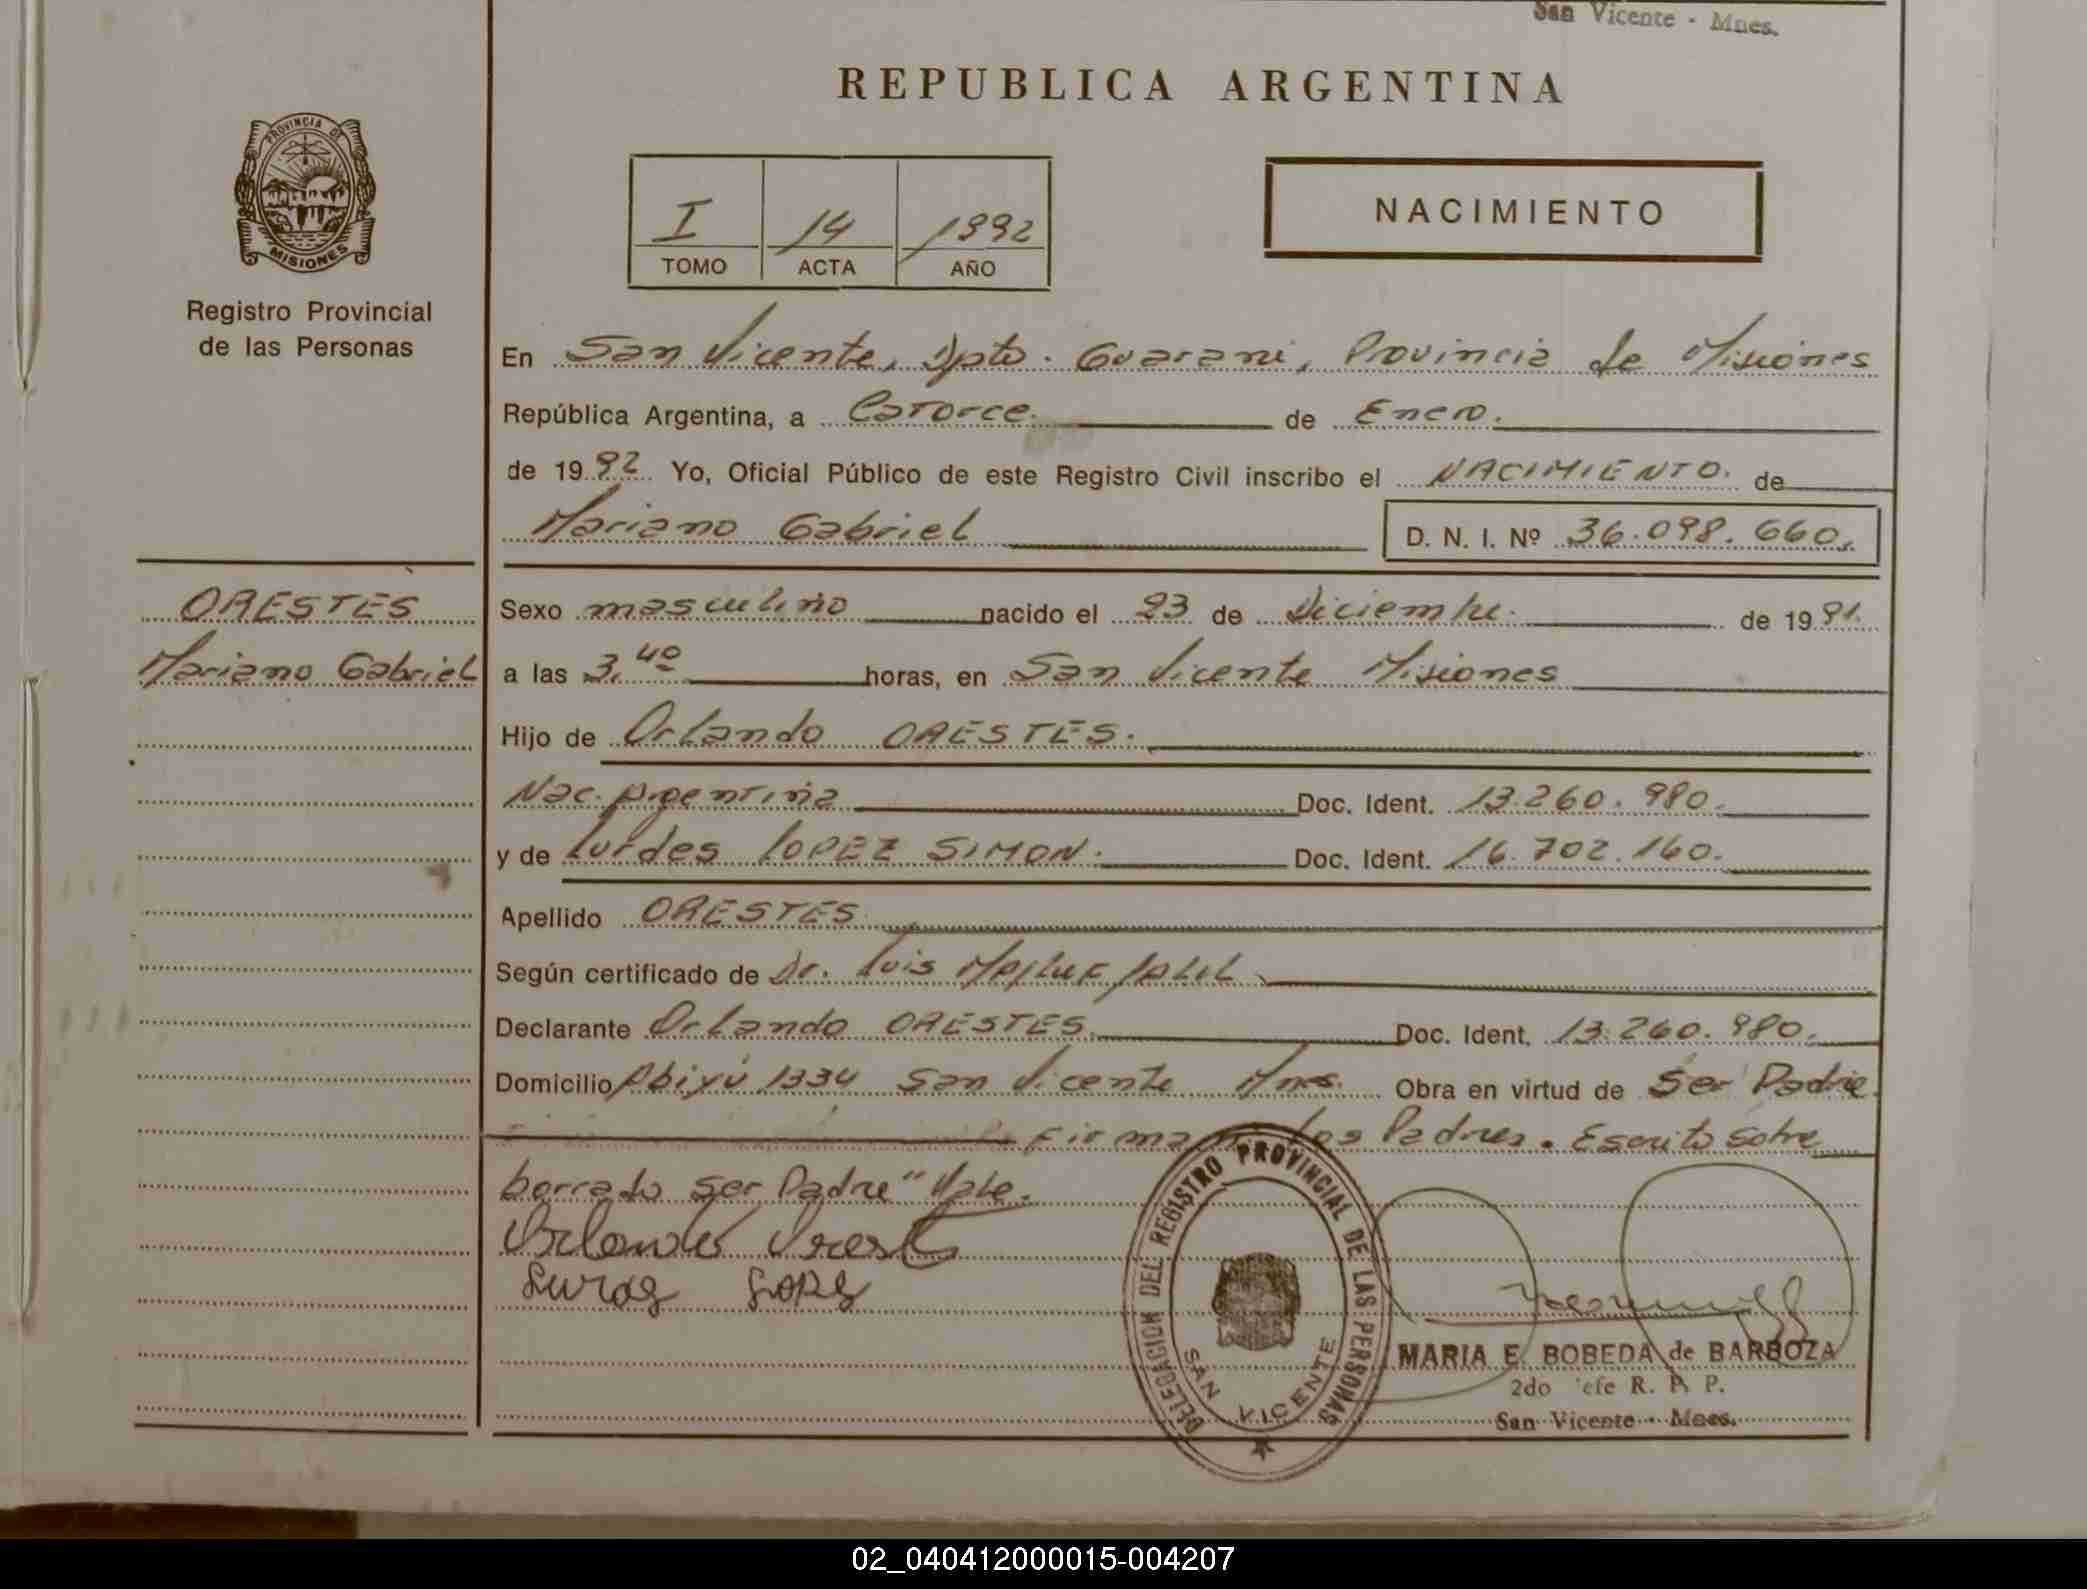 San Vicente - Mnes.
REPUBLICA ARGENTINA
PROVINCIA DE
MISIONES
Registro Provincial
de las Personas
I 14 1992
TOMO ACTA AÑO
NACIMIENTO
En San Vicente, Dpto. Guarani, Provincia de Misiones
República Argentina, a Catorce. de Enero.
de 1992. Yo, Oficial Público de este Registro Civil inscribo el NACIMIENTO. de
Mariano Gabriel D. N. I. Nº 36.098.660.
ORESTES
Mariano Gabriel
Sexo masculino nacido el 23 de Diciembre. de 1991.
a las 3,40 horas, en San Vicente Misiones
Hijo de Orlando ORESTES.
Nac. Argentina Doc. Ident. 13.260.980.
y de Lurdes LOPEZ SIMON. Doc. Ident. 16.702.160.
Apellido ORESTES.
Según certificado de Dr. Luis
Declarante Orlando ORESTES. Doc. Ident. 13.260.980.
Domicilio Abiyú 1334 San Vicente Mnes. Obra en virtud de Ser Padre.
Firman los Padres. Escrito sobre
borrado ser Padre" Vale.
Orlando Orestes
DELEGACION DEL REGISTRO PROVINCIAL DE LAS PERSONAS
SAN VICENTE
MARIA E. BOBEDA de BARBOZA
2do Jefe R. P. P.
San Vicente - Mnes.
02_040412000015-004207